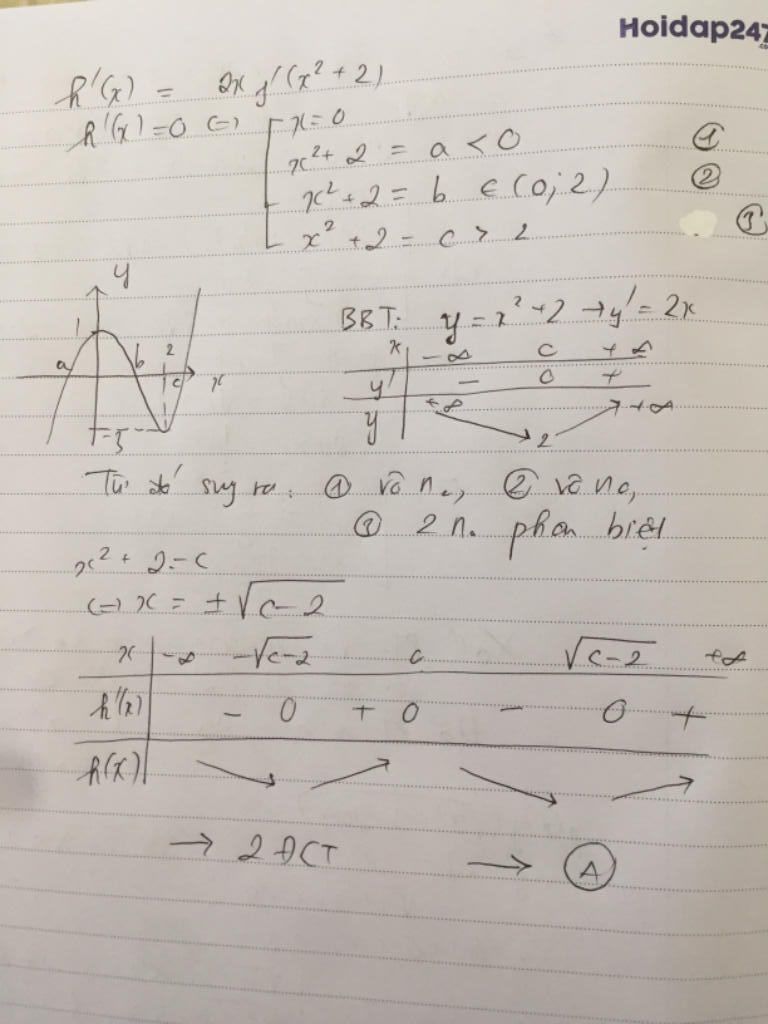 Hoidap247
.com
h'(x) = 2x f'(x² + 2)
h'(x) = 0 (=) [ x = 0
x² + 2 = a < 0 ①
x² + 2 = b ∈ (0; 2) ②
x² + 2 = c > 2 ③
y
1 a b 2 c x
-3
BBT: y = x² + 2 → y' = 2x
x | -∞ 0 +∞
y' | - 0 +
y | +∞ 2 +∞
Từ đó suy ra: ① vô n0, ② vô n0,
③ 2 n. phân biệt
x² + 2 = c
(=) x = ± √(c-2)
x | -∞ -√(c-2) 0 √(c-2) +∞
h'(x) | - 0 + 0 - 0 +
h(x)
→ 2 ĐCT → Ⓐ